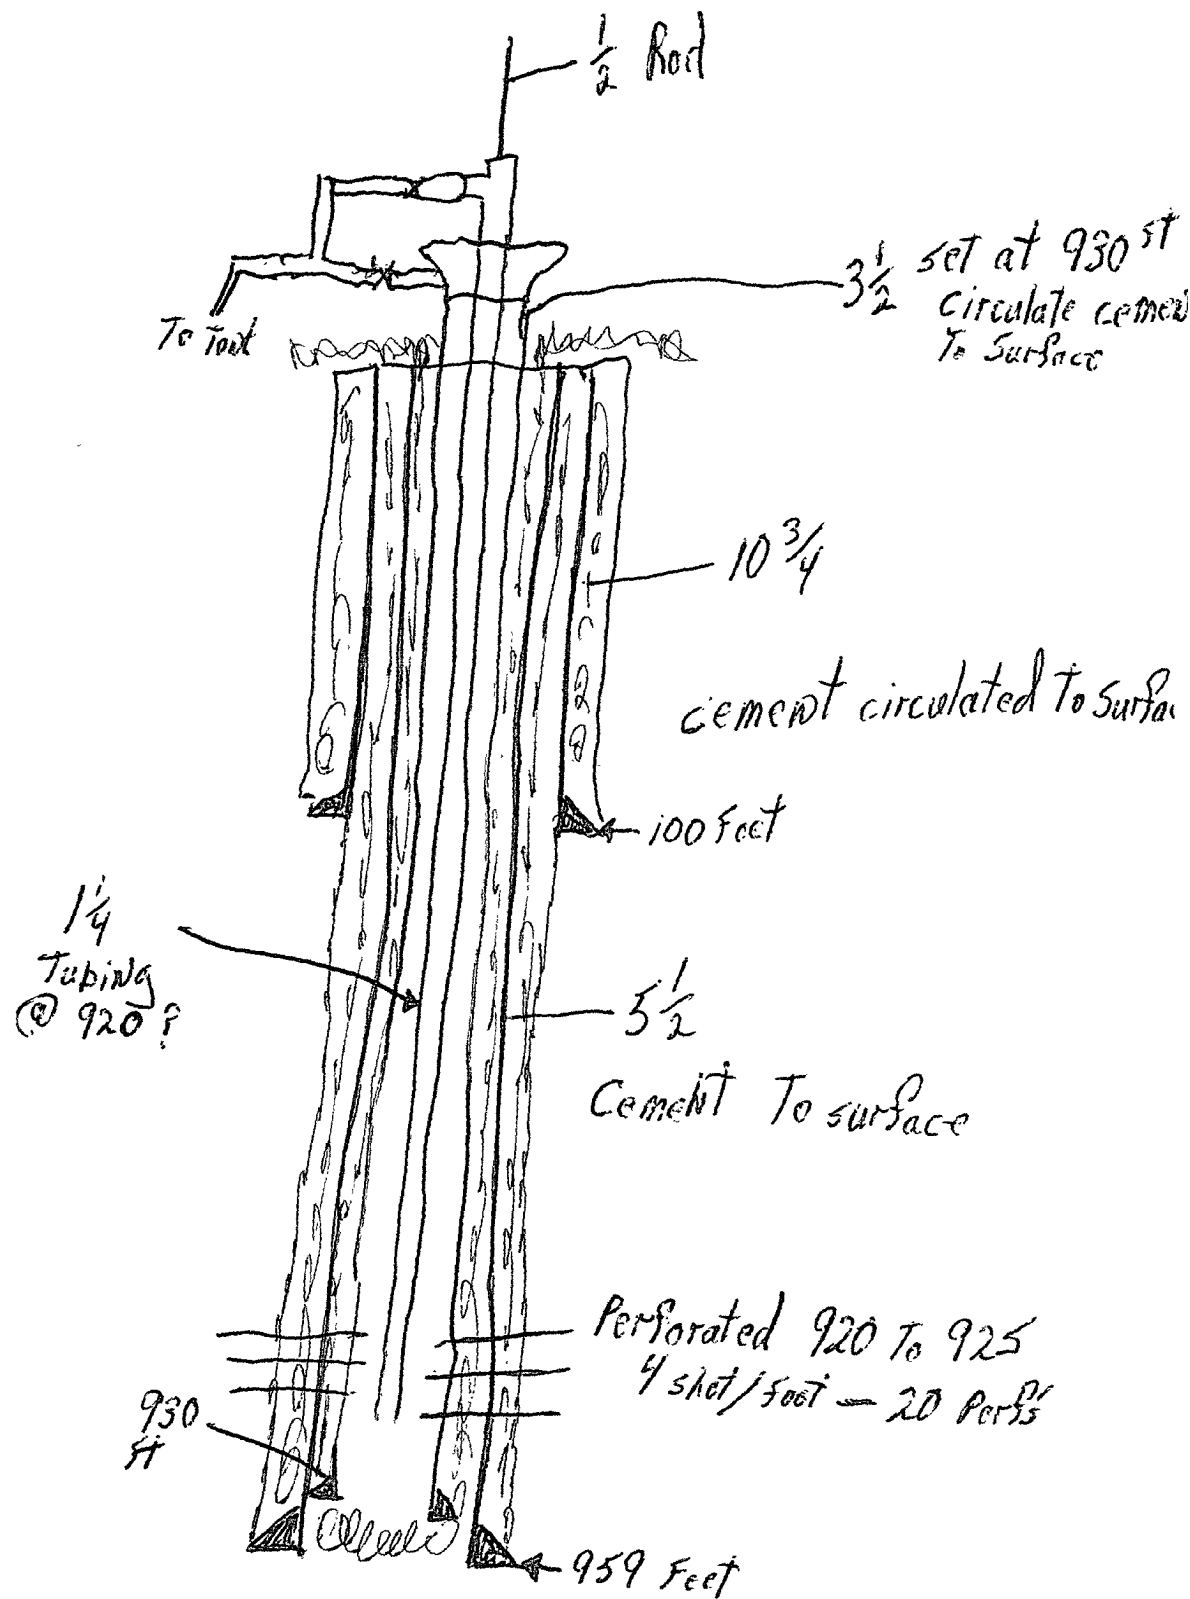 1/2 Rod
3 1/2 set at 930 ft
Circulate cemen
To Surface
To Tank
10 3/4
cement circulated To Surfac
100 Feet
1 1/4
Tubing
@ 920 ?
5 1/2
Cement To surface
Perforated 920 To 925
4 shot/foot — 20 Perfs
930
ft
959 Feet